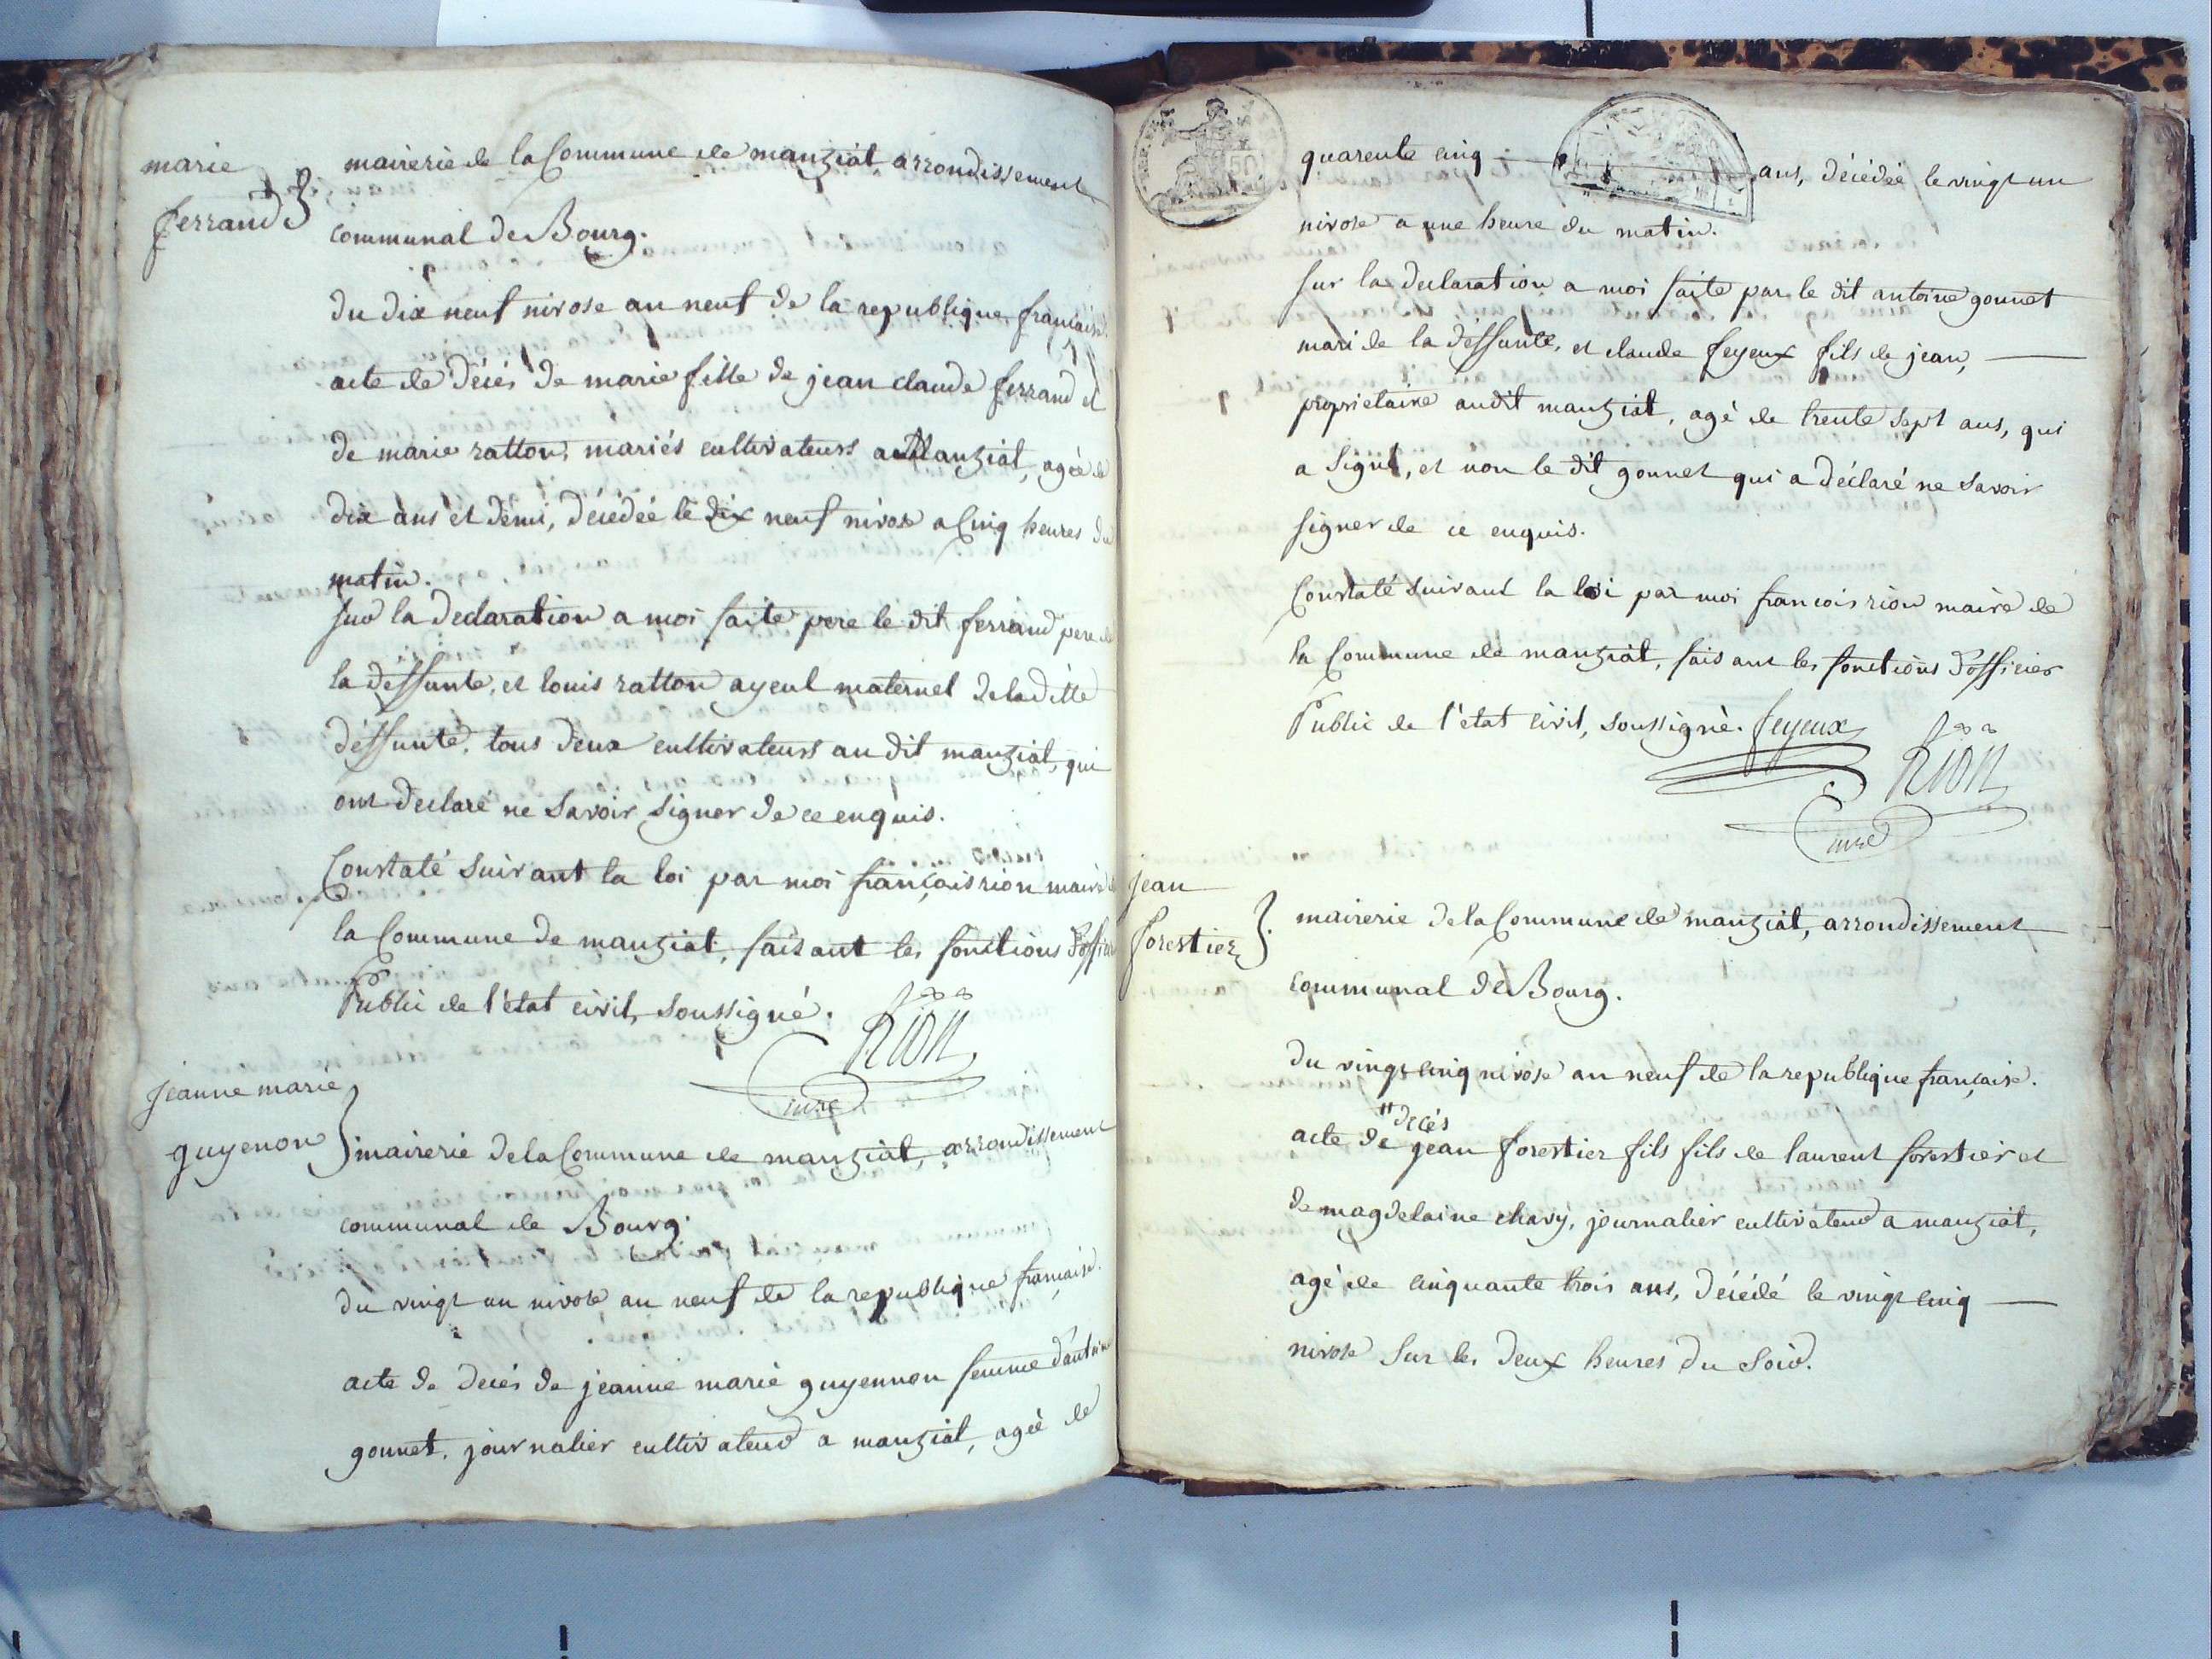 marie
ferrand
mairerie de la Commune de manziat arrondissement
communal de Bourg.
du dix neuf nivose an neuf de la republique française.
acte de décés de marie fille de jean claude ferrand et
de marie ratton, mariés cultivateurs a Manziat, agée de
dix ans et demi, décédée le dix neuf nivose a Cinq heures du
matin.
sur la declaration a moi faite pere le dit ferrand pere de
la deffunte, et louis ratton ayeul maternel de la ditte
deffunte, tous deux cultivateurs au dit manziat, qui
ont declaré ne savoir signer de ce enquis.
Constaté suivant la loi par moi françois rion maire de
la Commune de manziat, faisant les fonctions d'officier
Public de l'état civil, soussigné.
Rion
jeanne marie
guyenon
mairerie de la Commune de manziat, arrondissement
communal de Bourg.
du vingt un nivose an neuf de la republique française.
acte de decés de jeanne marie guyennon femme d'antoine
gonnet, journalier cultivateur a manziat, agée de
quarente cinq ans, décédée le vingt un
nivose a une heure du matin.
sur la declaration a moi faite par le dit antoine gonnet
mari de la deffunte, et claude feyeux fils de jean,
proprietaire audit manziat, agé de trente sept ans, qui
a signé, et non le dit gonnet qui a déclaré ne savoir
signer de ce enquis.
Constaté suivant la loi par moi francois rion maire de
la Commune de manziat, faisant les fonctions d'officier
Public de l'état civil, soussigné. feyeux
Rion
jean
forestier
mairerie de la Commune de manziat, arrondissement
communal de Bourg.
du vingt cinq nivose an neuf de la republique française.
decés
acte de jean forestier fils fils de laurent forestier et
de magdelaine chavy, journalier cultivateur a manziat,
agé de cinquante trois ans, décédé le vingt cinq
nivose sur les deux heures du soir.